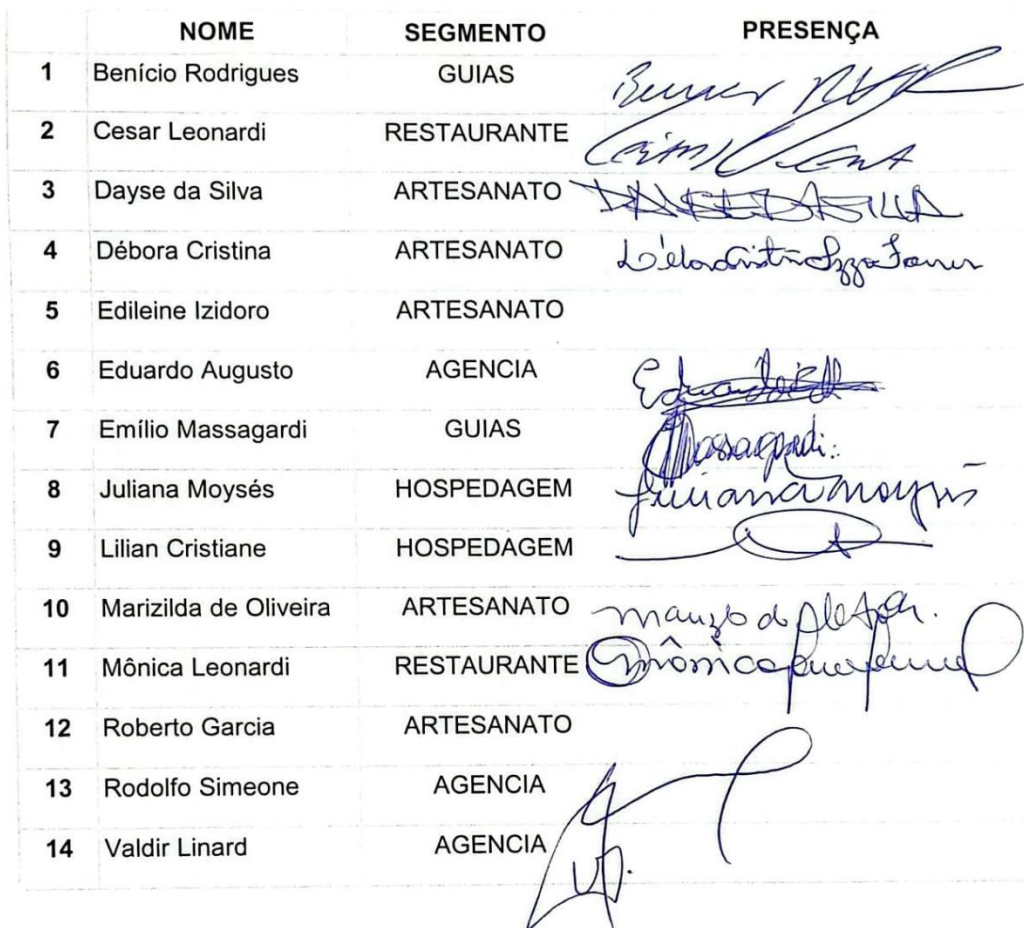 NOME SEGMENTO PRESENÇA
1 Benício Rodrigues GUIAS
2 Cesar Leonardi RESTAURANTE
3 Dayse da Silva ARTESANATO DAYSE DA SILVA
4 Débora Cristina ARTESANATO Débora Cristina
5 Edileine Izidoro ARTESANATO
6 Eduardo Augusto AGENCIA Eduardo
7 Emílio Massagardi GUIAS Massagardi
8 Juliana Moysés HOSPEDAGEM Juliana Moysés
9 Lilian Cristiane HOSPEDAGEM
10 Marizilda de Oliveira ARTESANATO
11 Mônica Leonardi RESTAURANTE Mônica
12 Roberto Garcia ARTESANATO
13 Rodolfo Simeone AGENCIA
14 Valdir Linard AGENCIA